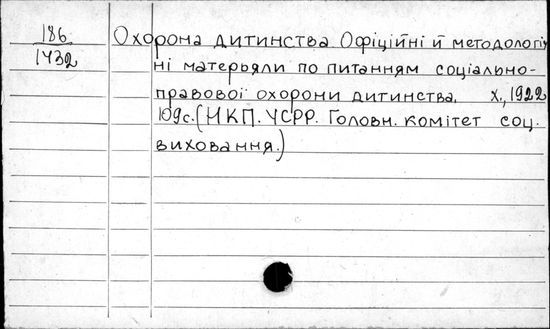 186
1432
Охорона дитинства. Офіційні й методологіч
ні матерьяли по питанням соціально-
правової охорони дитинства. Х., 1922
109с. (НКП. УСРР. Головн. комітет соц.
виховання.)